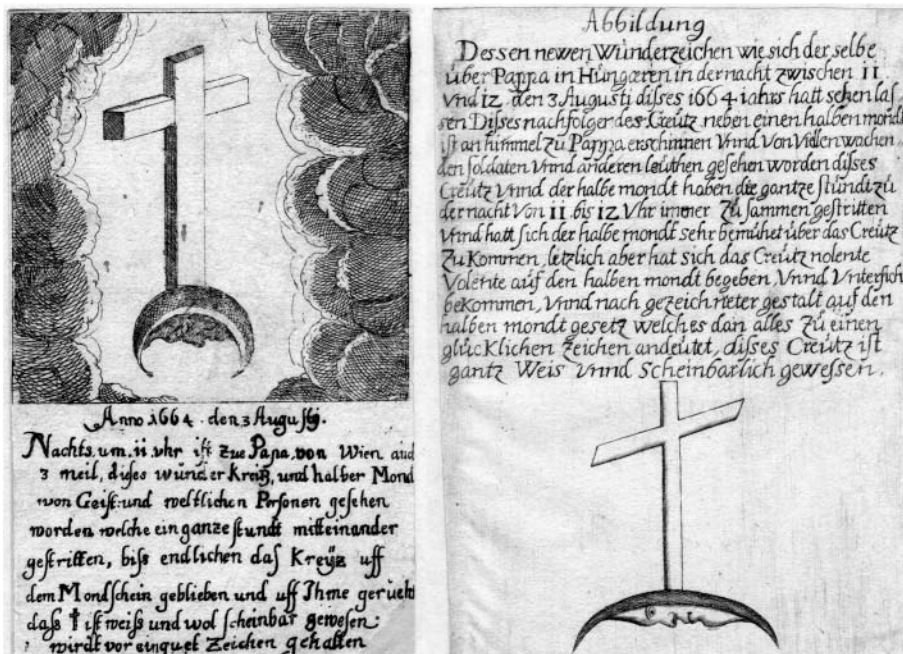 Anno 1664 den 3 Augustj.
Nachts um 11 vhr ist zue Papa von Wien auch
3 meil, dises wunder Kreiß, und halber Mond
von Geist: und weltlichen Personen gesehen
worden welche ein ganze stundt mitteinander
gestritten, biss endlichen das Kreÿz uff
dem Mondschein geblieben und uff Ihme geruckt
dass † ist weiss und wol scheinbar gewesen:
wirdt vor ein guet Zeichen gehalten
Abbildung
Dessen newen Wunderzeichen wie sich der selbe
über Pappa in Hungaren in der nacht zwischen 11
Vnd 12 den 3 Augustj dises 1664 iahrs hatt sehen las
sen Dises nachfolger des Creutz neben einen halben mondt
ist an himmel zu Pappa erschinnen Vnnd Von Villen wachen
den soldaten Vnnd anderen leuthen gesehen worden dises
Creutz Vnnd der halbe mondt haben die gantze stundt zu
der nacht Von 11 bis 12 Vhr immer Zu sammen gestritten
Vnnd hatt sich der halbe mondt sehr bemühet über das Creutz
Zu Kommen, letzlich aber hat sich das Creutz nolente
Volente auf den halben mondt begeben Vnnd Vntersich
bekommen, Vnnd nach gezeichneter gestalt auf den
halben mondt gesetz welches dan alles Zu einen
glücklichen Zeichen andeutet, dises Creutz ist
gantz Weis Vnnd Scheinbarlich gewessen.